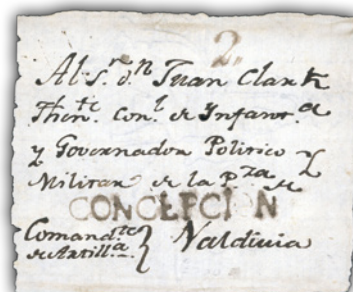 2.
Al S.r d.n Juan Clark
Then.te Con.l de Infant.a
y Governador Politico y
Militar de la P.za de
CONCEPCI N
Comand.te Valdivia
de Artill.a